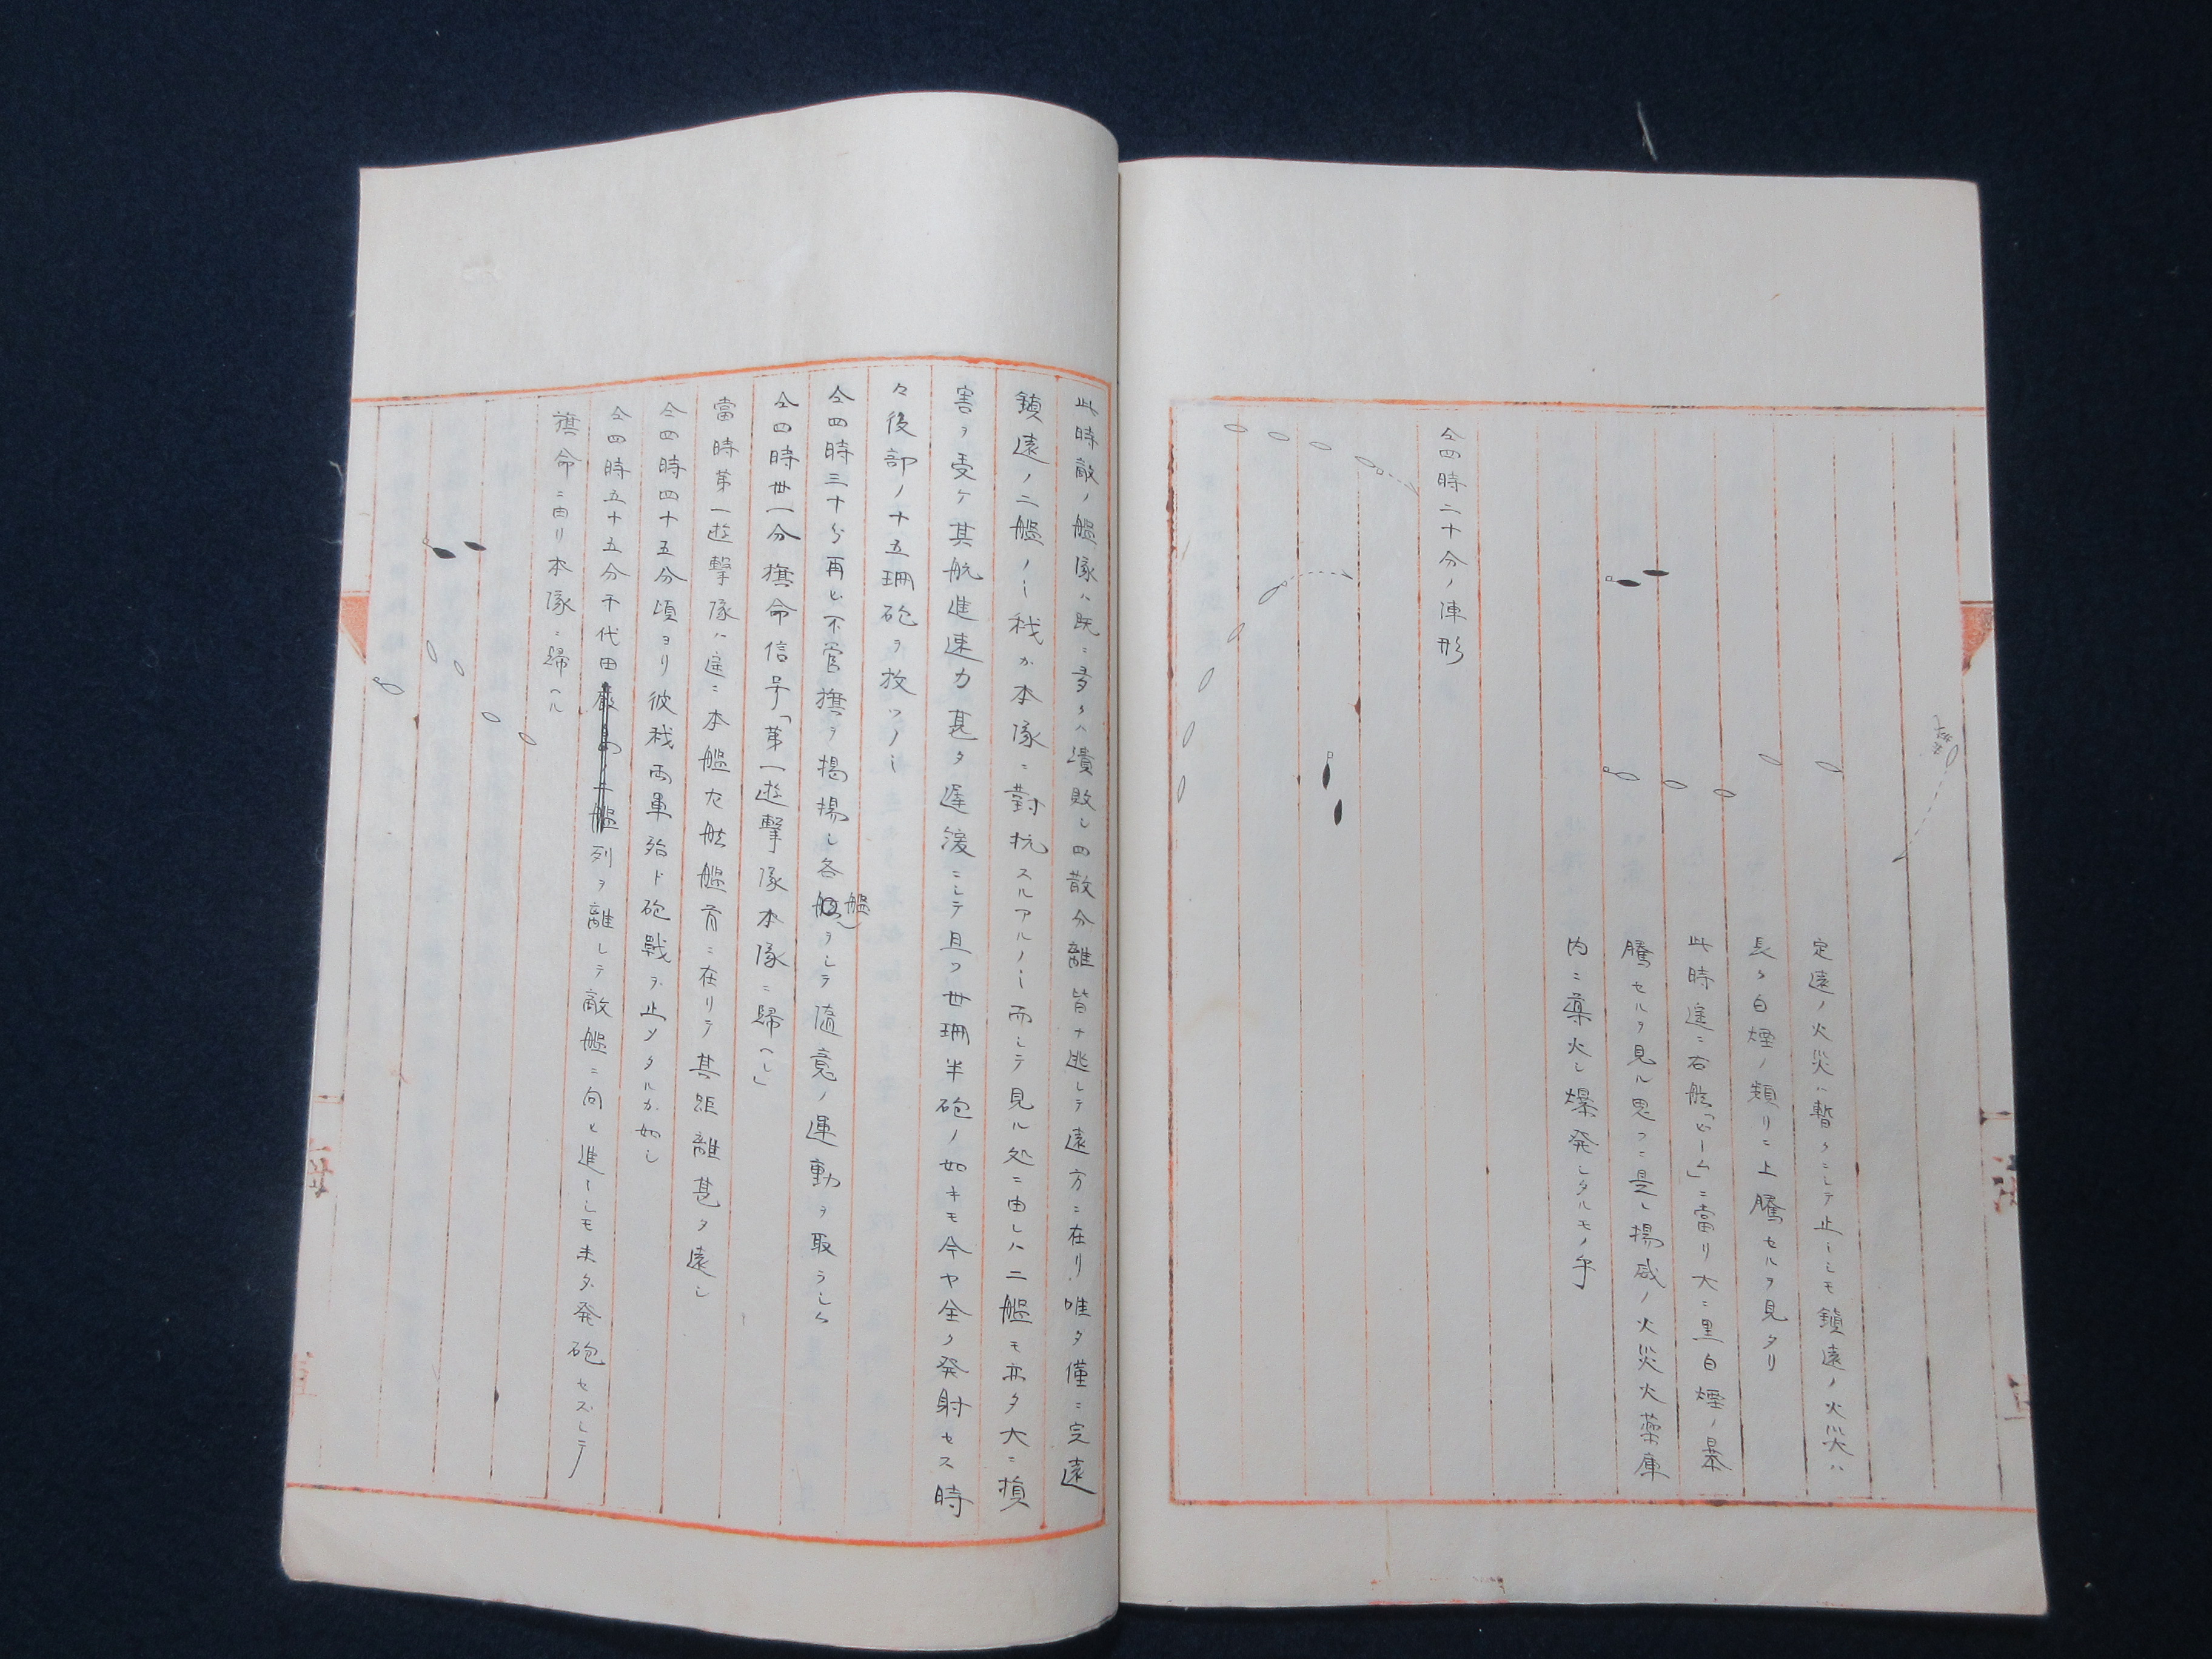 定遠ノ火災ハ暫クニシテ止ミシモ鎮遠ノ火災ハ
長ク白煙ノ頻リニ上騰セルヲ見タリ
此時遥ニ右舷「ビーム」ニ當リ大ニ黒白煙ノ暴
騰セルヲ見ル思フニ是レ揚威ノ火災火薬庫
内ニ薬火シ爆発シタルモノ乎
仝四時二十分ノ陣形
此時敵ノ艦隊ハ既ニ多クハ潰敗シ四散分離皆ナ逃レテ遠方ニ在リ唯タ僅ニ定遠
鎮遠ノ二艦ノミ我カ本隊ニ對抗スルアルノミ而シテ見ル処ニ由レハ二艦モ亦タ大ニ損
害ヲ受ケ其航進速力甚タ遅緩ニシテ且ツ卅珊半砲ノ如キモ今ヤ全ク発射セス時
々後部ノ十五珊砲ヲ放ツノミ
仝四時三十分再ヒ不管旗ヲ揚揚シ各艦ヲシテ随意ノ運動ヲ取ラシム
仝四時卅一分旗命信号「第一遊撃隊本隊ニ歸ヘレ」
當時第一遊撃隊ハ遥ニ本艦左舷艦首ニ在リテ其距離甚タ遠シ
仝四時四十五分頃ヨリ彼我両軍殆ド砲戰ヲ止メタルカ如シ
仝四時五十五分千代田列ヲ離レテ敵艦ニ向ヒ進ミシモ未タ発砲セズシテ
旗命ニ由リ本隊ニ歸ヘル